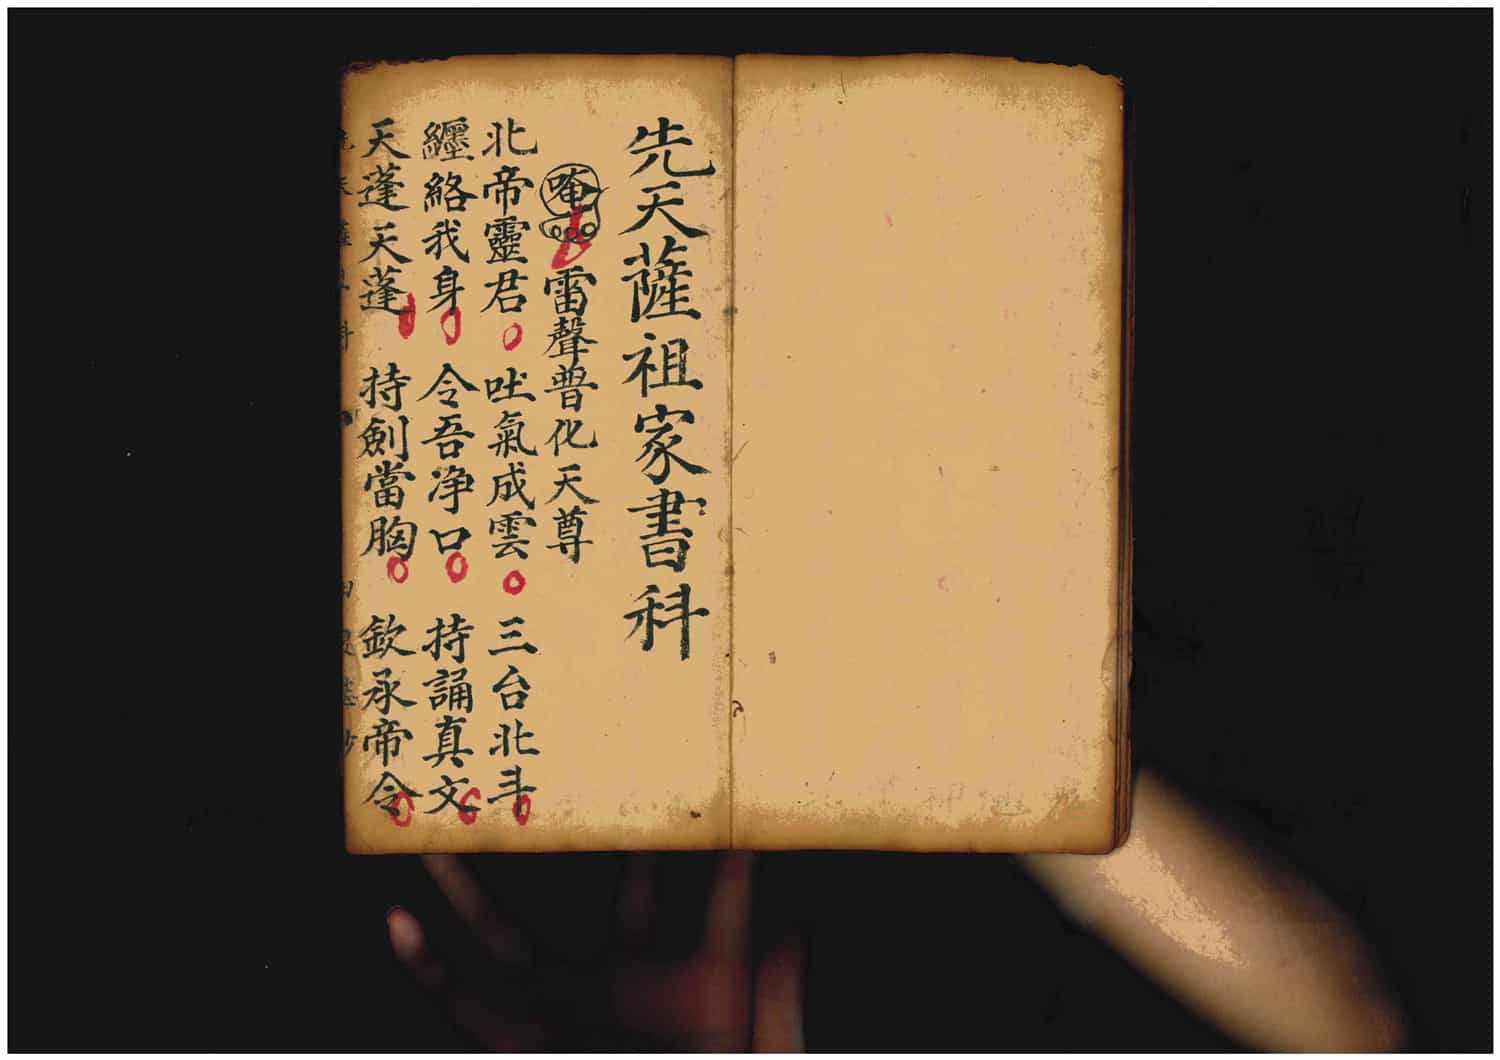 先天薩祖家書科
唵 雷聲普化天尊
北帝靈君 吐氣成雲 三台北斗
纏絡我身 令吾净口 持誦真文
天蓬天蓬 持劍當胸 欽承帝令